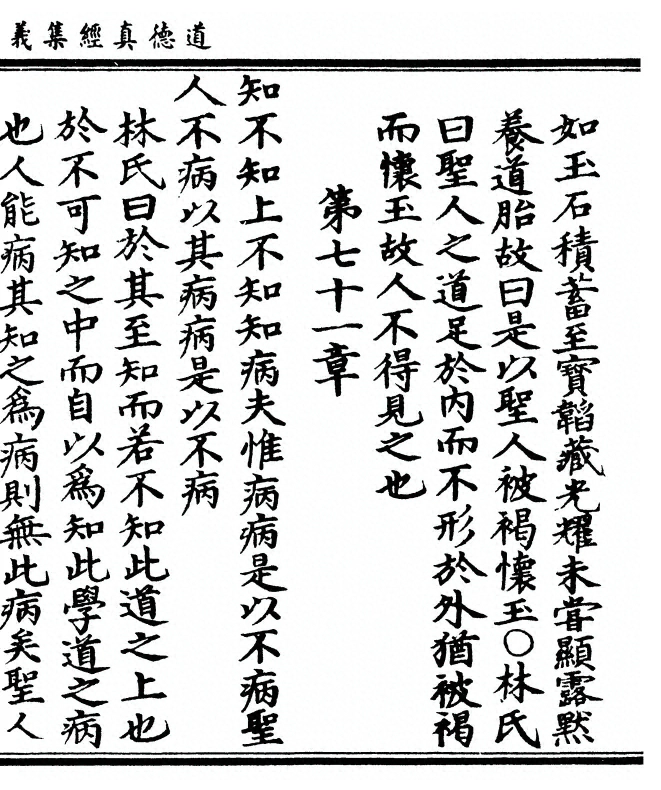 道德真經集義
如玉石積蓄至寶韜藏光耀未嘗顯露默
養道胎故曰是以聖人被褐懷玉〇林氏
曰聖人之道足於內而不形於外猶被褐
而懷玉故人不得見之也
第七十一章
知不知上不知知病夫惟病病是以不病聖
人不病以其病病是以不病
林氏曰於其至知而若不知此道之上也
於不可知之中而自以爲知此學道之病
也人能病其知之爲病則無此病矣聖人